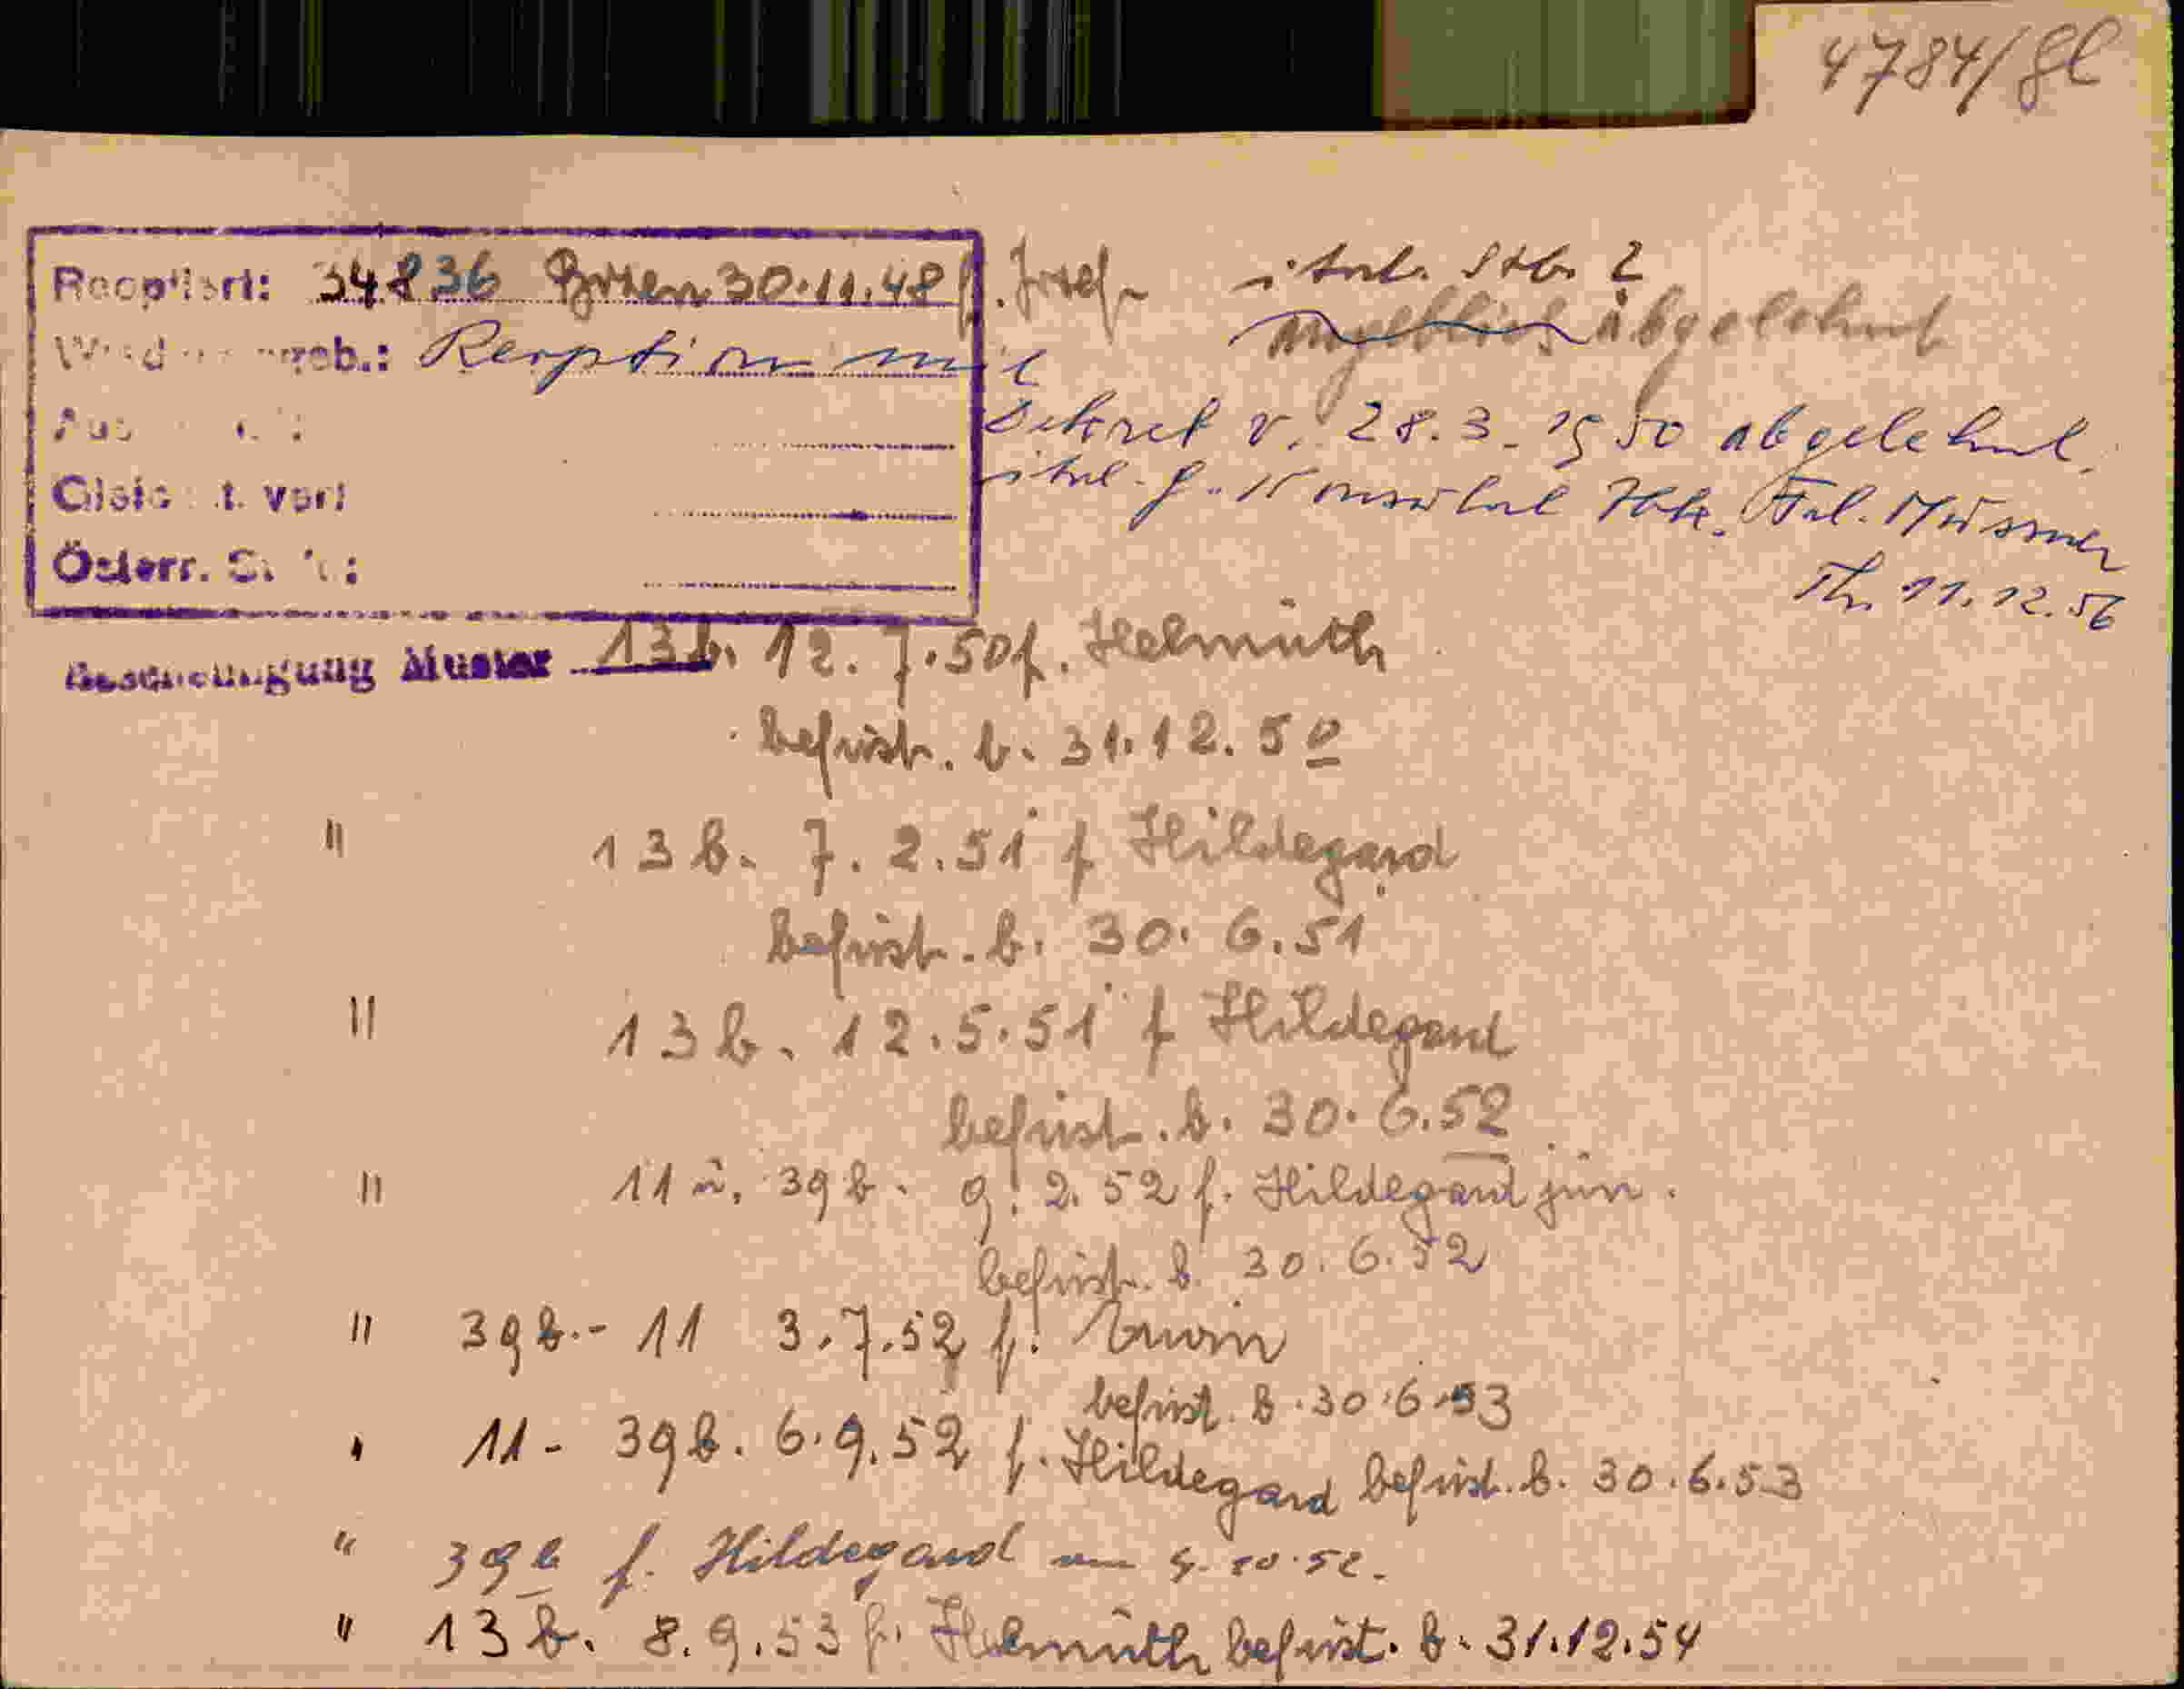 4784/gl
Reoptiert: 34836 Brixen 30.11.48 f. Josef
ital. Stb. ?
angeblich abgelehnt
Reoption mit
Dekret v. 28.3.1950 abgelehnt.
ital. g. Konsulat Ibk. Frl. Mussner
11.12.56
Österr.
Bescheinigung Muster 13b. 12.7.50 f. Helmuth
befrist. b. 31.12.50
" 13b. 7.2.51 f Hildegard
befrist. b. 30.6.51
" 13b. 12.5.51 f Hildegard
befrist. b. 30.6.52
" 11 u. 39b. 9.2.52 f. Hildegard jun.
befrist. b. 30.6.52
" 39b.- 11 3.7.52 f. Erwin
befrist. b. 30.6.53
" 11 - 39b. 6.9.52 f. Hildegard befrist. b. 30.6.53
" 39b f. Hildegard am 4.10.52.
" 13b. 8.9.53 f. Helmuth befrist. b. 31.12.54